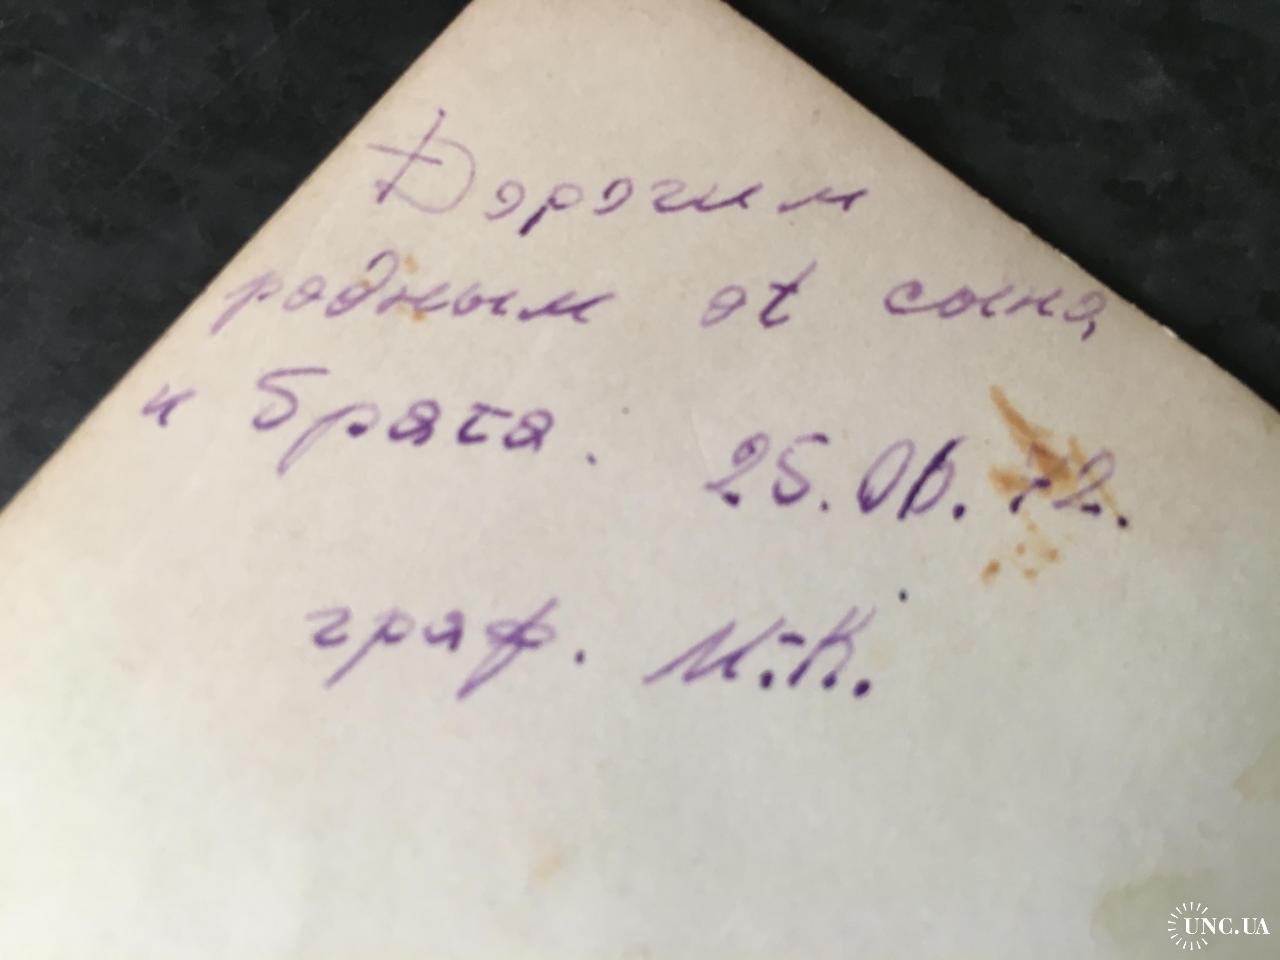 Дорогим
родным от сына
и брата. 25.06.72.
граф. М.-К.
UNC.UA